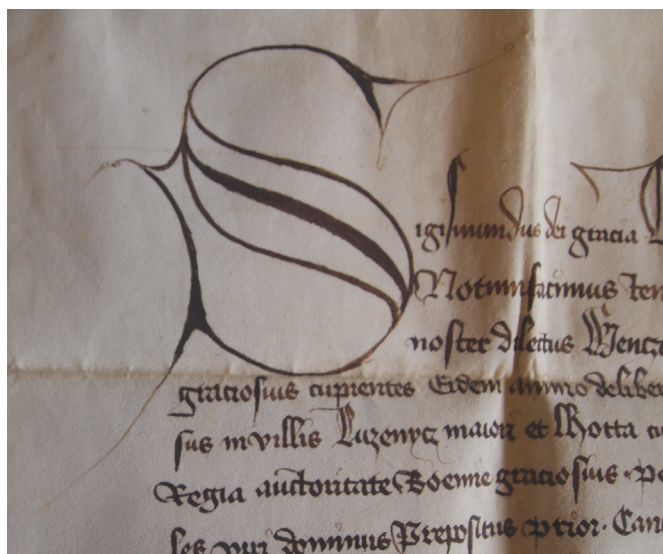 Sigismundus dei gracia
Notumfacimus ten
noster dilectus Wencz
graciosius cupientes Eidem animo deliber
sus in villis Luzenycz maiori et Lhotta
Regia auctoritate Boemie graciosius. pe
les viri dominus Prepositus Prior. Can